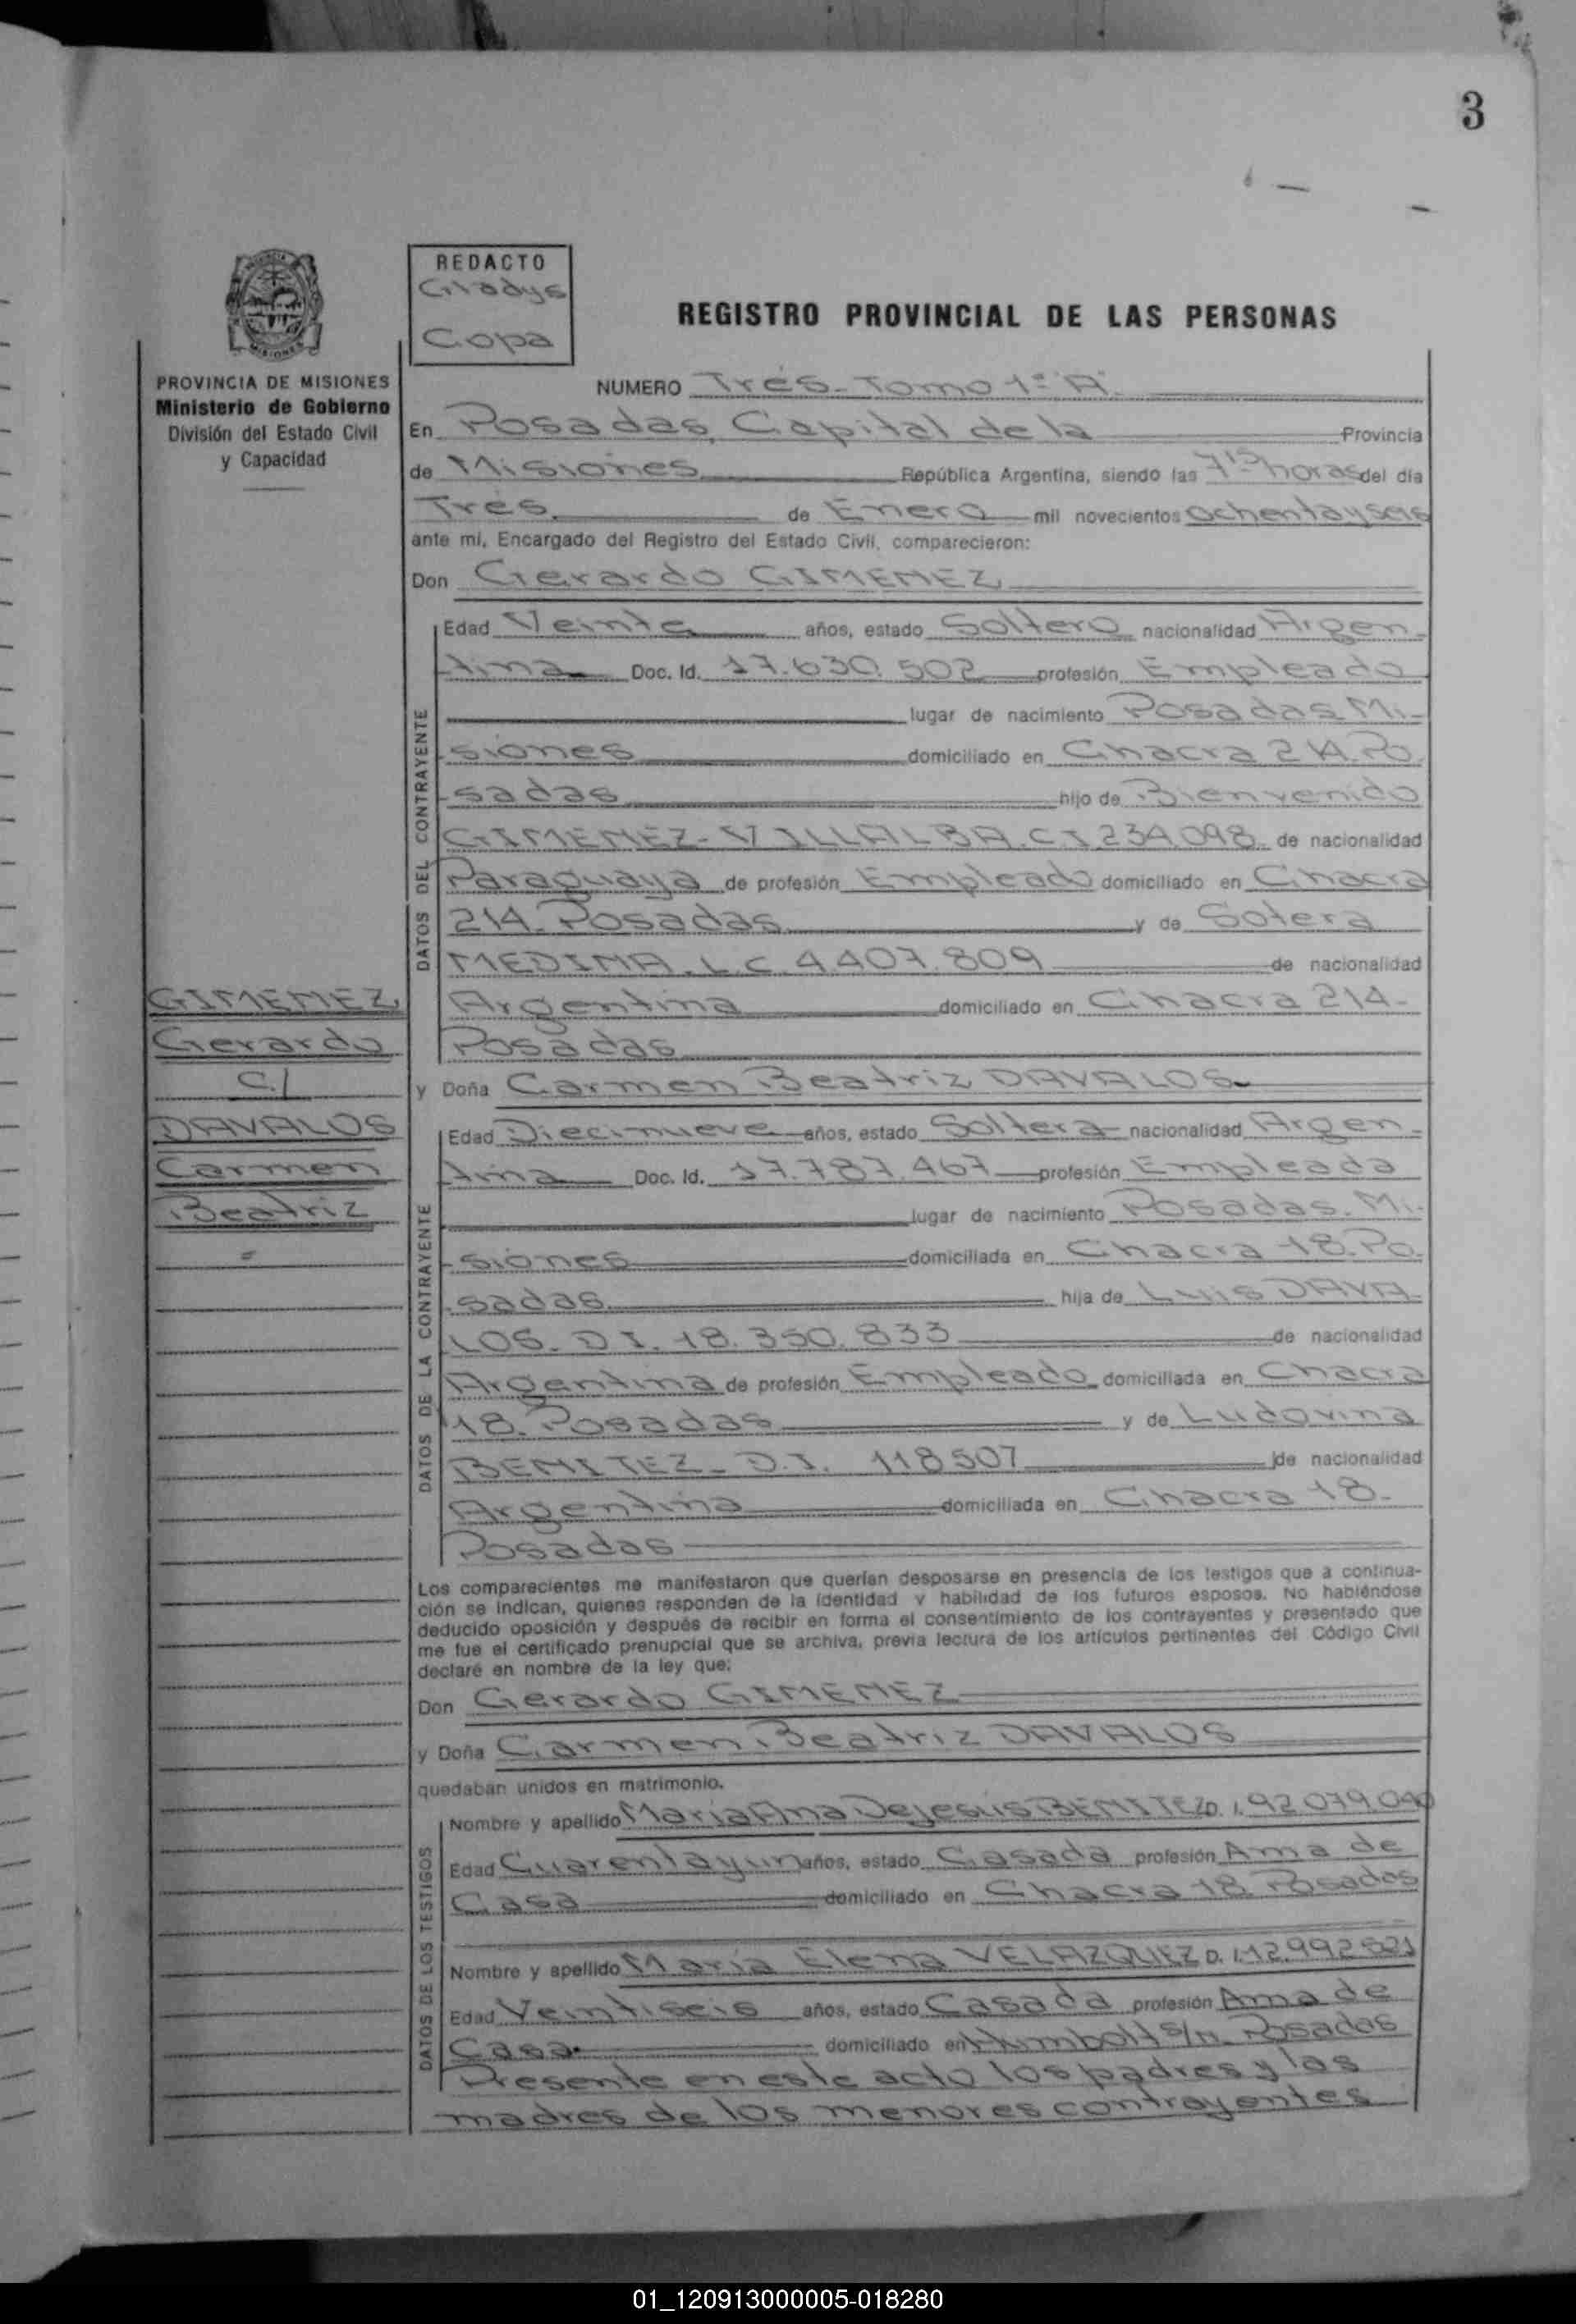 3
REDACTO
Gladys
Copa
REGISTRO PROVINCIAL DE LAS PERSONAS
PROVINCIA DE MISIONES
Ministerio de Gobierno
División del Estado Civil
y Capacidad
MISIONES
NUMERO Trés-Tomo 1º "A"
En Posadas, Capital de la Provincia
de Misiones República Argentina, siendo las horas del día
Tres de Enero mil novecientos ochenta y seis
ante mí, Encargado del Registro del Estado Civil, comparecieron:
Don Gerardo GIMENEZ
DATOS DEL CONTRAYENTE
Edad Veinte años, estado Soltero nacionalidad Argen-
tina Doc. Id. 17.630.502 profesión Empleado
lugar de nacimiento Posadas Mi-
siones domiciliado en Chacra 214. Po
sadas hijo de Bienvenido
GIMENEZ-VILLALBA. C.I 234.098 de nacionalidad
Paraguaya de profesión Empleado domiciliado en Chacra
214. Posadas y de Sotera
MEDINA. L.C. 4.407.809 de nacionalidad
Argentina domiciliado en Chacra 214-
Posadas
GIMENEZ
Gerardo
C/
DAVALOS
Carmen
Beatriz
=
y Doña Carmen Beatriz DAVALOS
DATOS DE LA CONTRAYENTE
Edad Diecinueve años, estado Soltera nacionalidad Argen-
tina Doc. Id. 17.787.467 profesión Empleada
lugar de nacimiento Posadas. Mi-
siones domiciliada en Chacra 18. Po-
sadas hija de Luis DAVA-
LOS. D.I. 18.350.833 de nacionalidad
Argentina de profesión Empleado domiciliada en Chacra
18. Posadas y de Ludovina
BENITEZ- D.I. 118507 de nacionalidad
Argentina domiciliada en Chacra 18-
Posadas
Los comparecientes me manifestaron que querían desposarse en presencia de los testigos que a continua-
ción se indican, quienes responden de la identidad y habilidad de los futuros esposos. No habiéndose
deducido oposición y después de recibir en forma el consentimiento de los contrayentes y presentado que
me fue el certificado prenupcial que se archiva, previa lectura de los artículos pertinentes del Código Civil
declaré en nombre de la ley que:
Don Gerardo GIMENEZ
y Doña Carmen Beatriz DAVALOS
quedaban unidos en matrimonio.
DATOS DE LOS TESTIGOS
Nombre y apellido María Ana Dejesús BENITEZ D.I. 92.079.040
Edad Cuarenta y un años, estado Casada profesión Ama de
Casa domiciliado en Chacra 18 Posadas
Nombre y apellido María Elena VELAZQUEZ D.I. 12.992.521
Edad Veintiseis años, estado Casada profesión Ama de
Casa domiciliado en Humbolt s/n. Posadas
Presente en este acto los padres y las
madres de los menores contrayentes
01_120913000005-018280